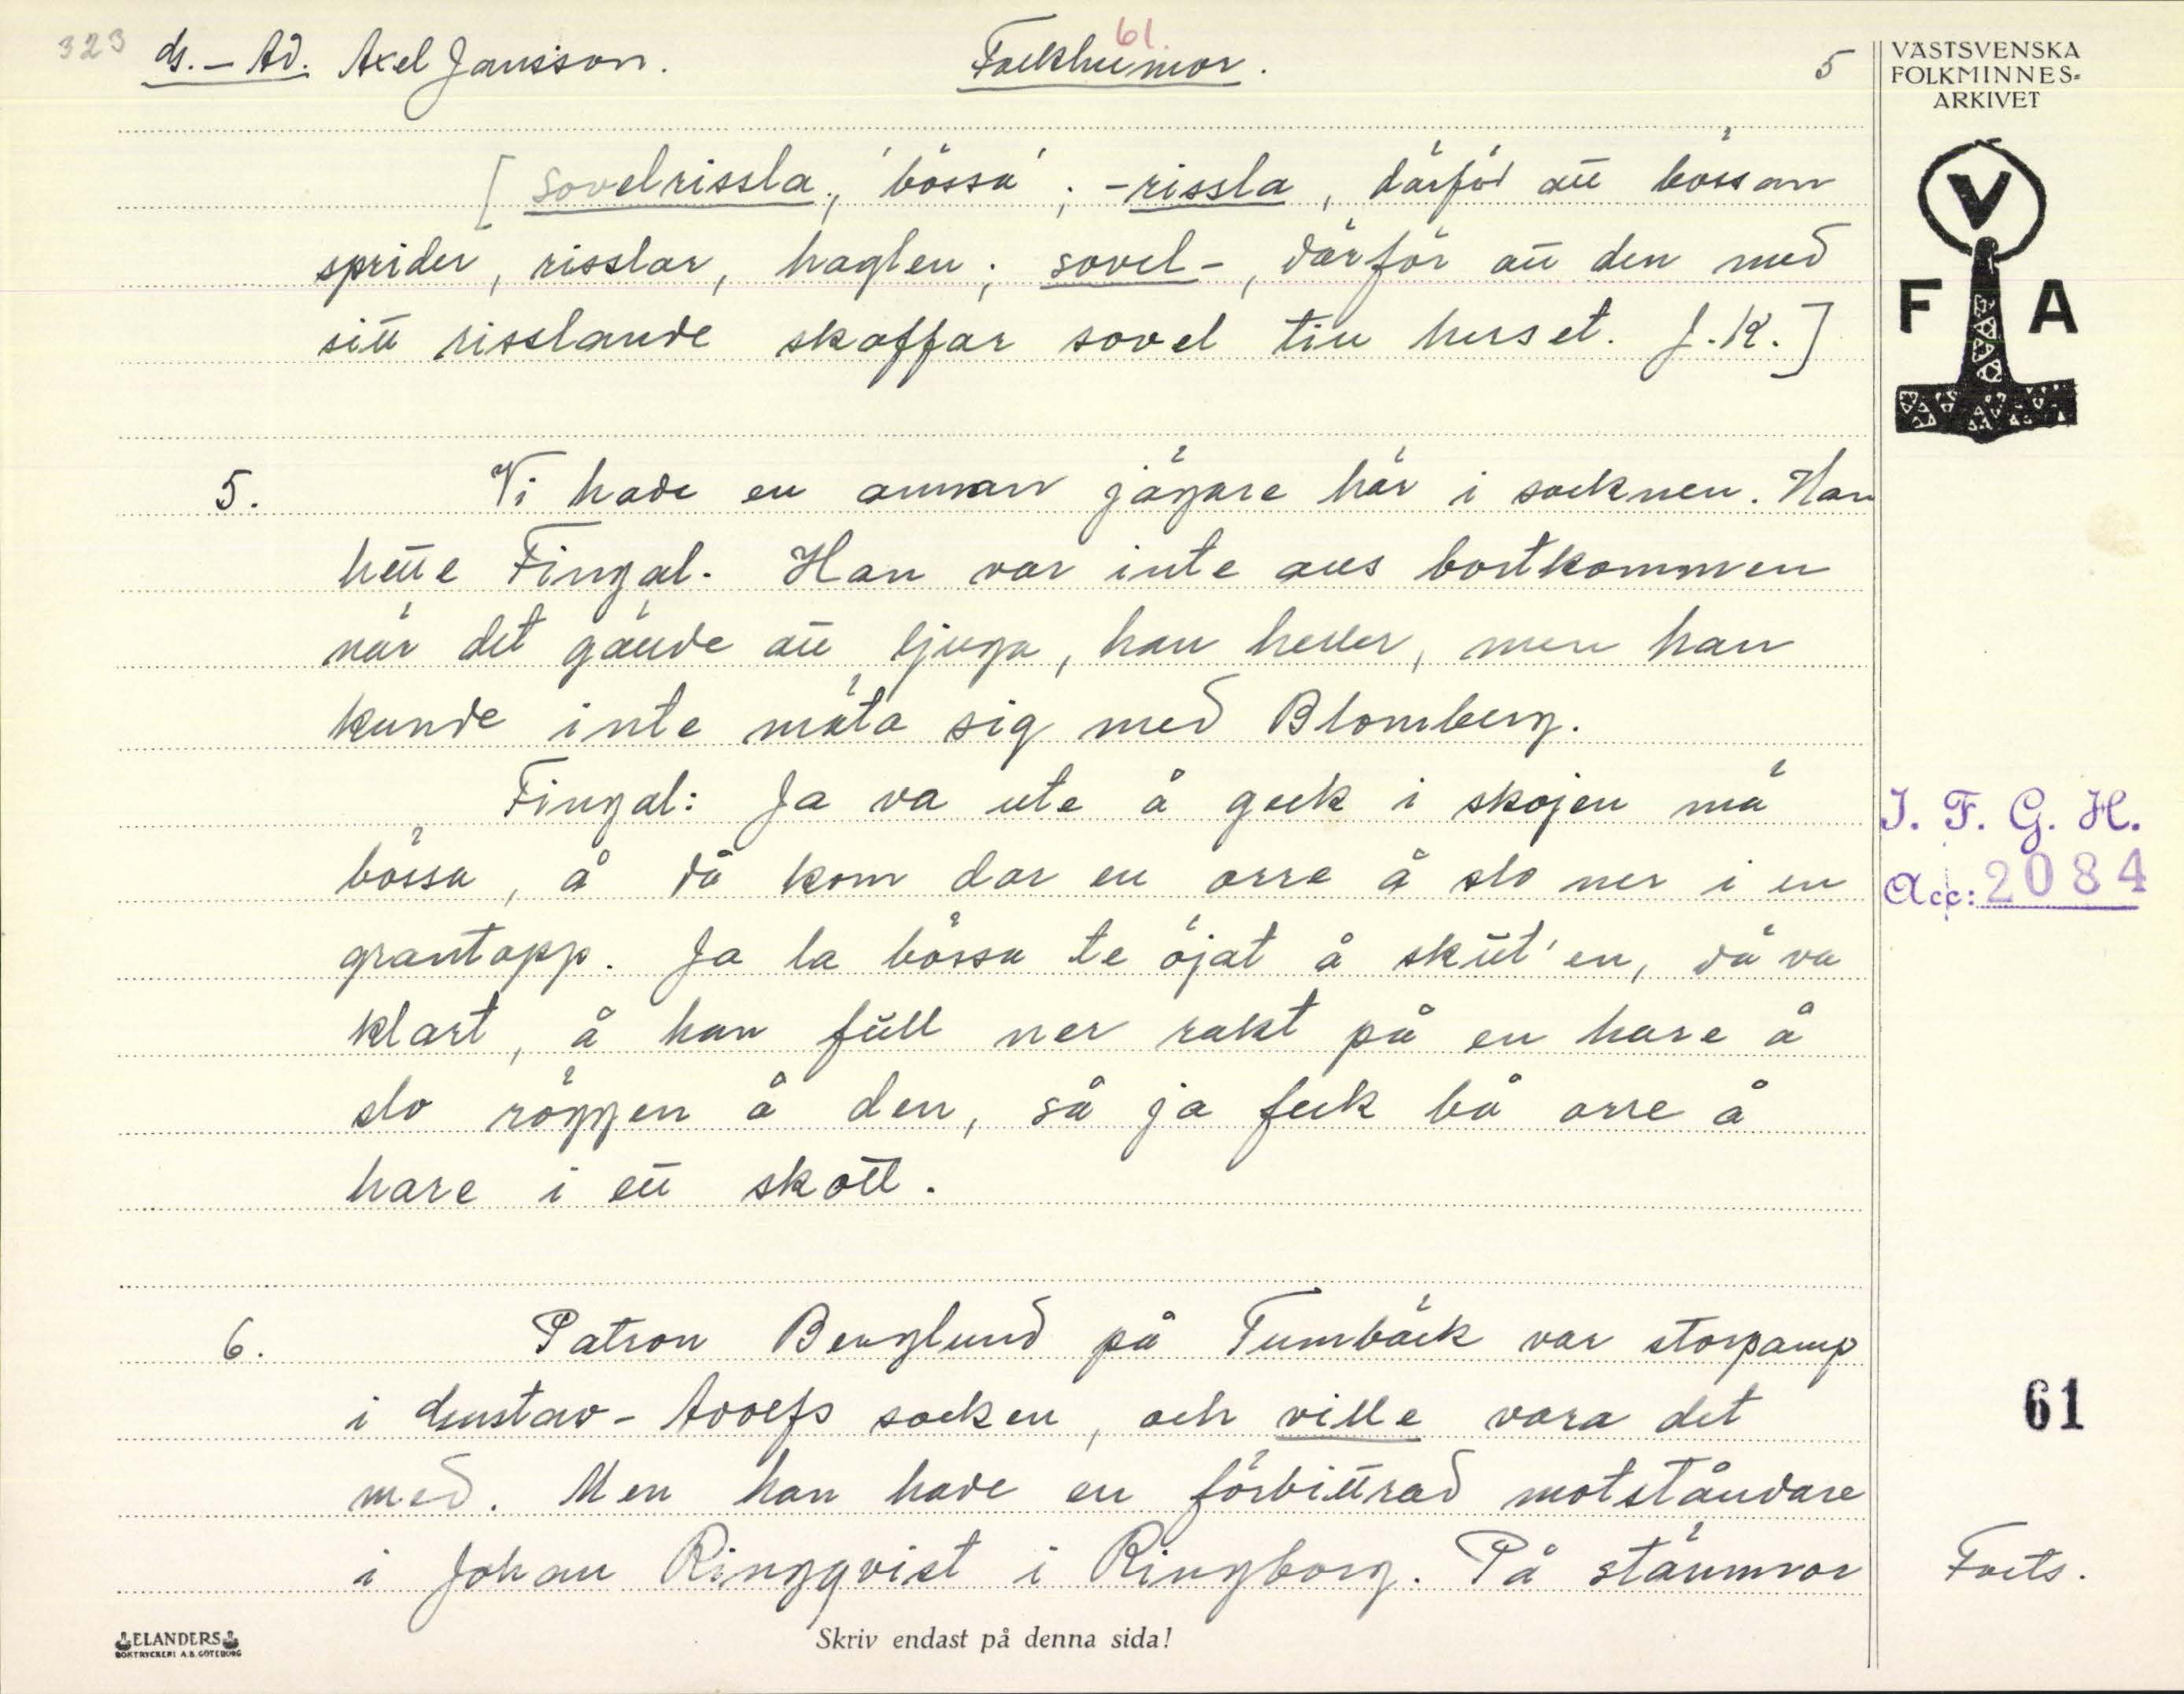 323 G.-Ad. Axel Jansson. Folkhumor. 61. 5
VÄSTSVENSKA
FOLKMINNES-
ARKIVET
V
F A
[sovelrissla, 'bössa'; -rissla, därför att bössan
sprider, risslar, haglen; sovel-, därför att den med
sitt risslande skaffar sovel till huset. J.K.]
5. Vi hade en annan jägare här i socknen. Han
hette Fingal. Han var inte alls bortkommen
när det gällde att ljuga, han heller, men han
kunde inte mäta sig med Blomberg.
Fingal: Ja va ute å geck i skojen mä
bössa, å då kom dar en orre å slo ner i en
grantopp. Ja la bössa te öjat å sküt'en, dä va
klart, å han füll ner rakt på en hare å
slo röggen å den, så ja feck bå orre å
hare i ett skott.
I. F. G. H.
Acc: 2084
6. Patron Berglund på Tumbäck var storpamp
i Gustav-Adolfs socken, och ville vara det
med. Men han hade en förbittrad motståndare
i Johan Ringqvist i Ringborg. På stämmor
61
Forts.
ELANDERS
BOKTRYCKERI A.B. GÖTEBORG
Skriv endast på denna sida!